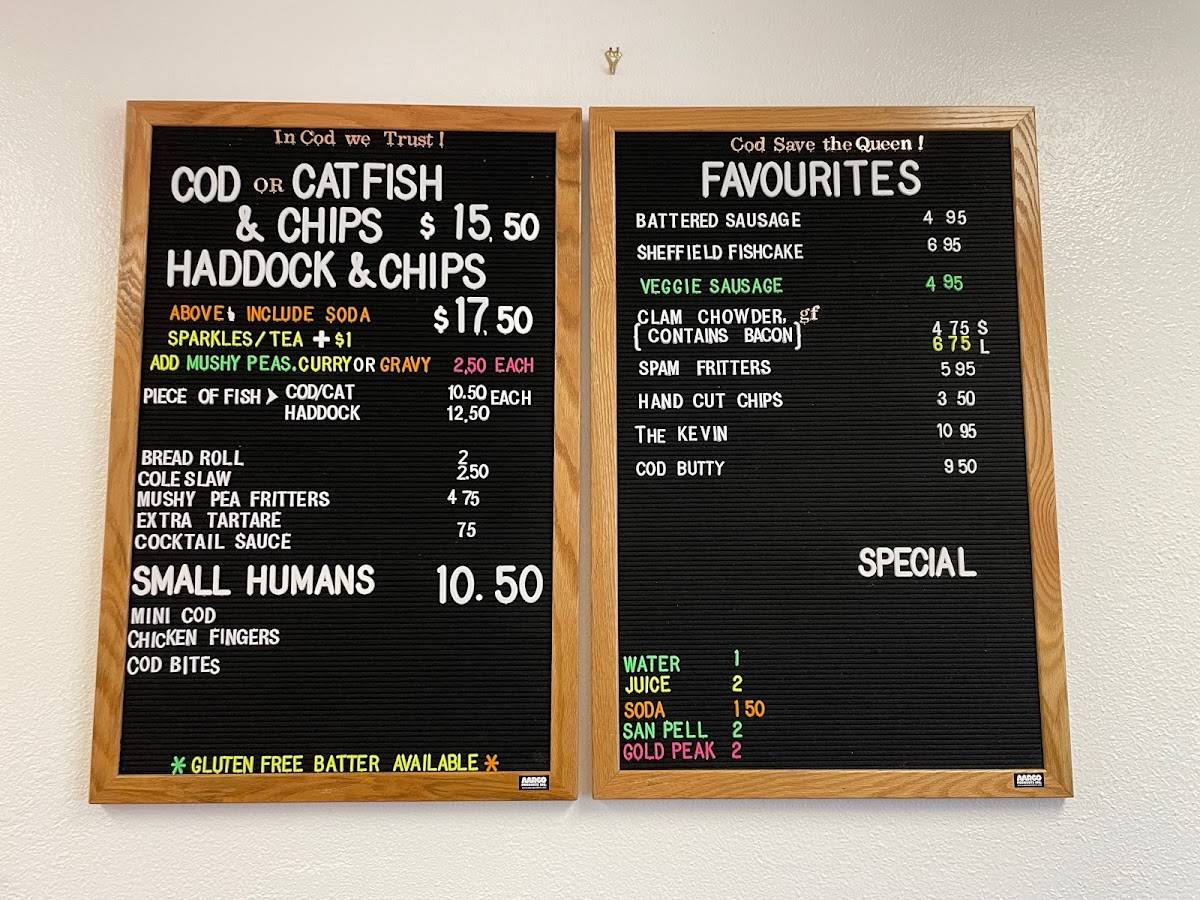 In Cod we Trust!
COD OR CATFISH
& CHIPS $ 15.50
HADDOCK & CHIPS
ABOVE INCLUDE SODA $17.50
SPARKLES/TEA + $1
ADD MUSHY PEAS.CURRY OR GRAVY 2.50 EACH
PIECE OF FISH COD/CAT 10.50 EACH
HADDOCK 12.50
BREAD ROLL 2
COLE SLAW 2.50
MUSHY PEA FRITTERS 4 75
EXTRA TARTARE
COCKTAIL SAUCE 75
SMALL HUMANS 10.50
MINI COD
CHICKEN FINGERS
COD BITES
* GLUTEN FREE BATTER AVAILABLE *
AARCO
Cod Save the Queen!
FAVOURITES
BATTERED SAUSAGE 4 95
SHEFFIELD FISHCAKE 6 95
VEGGIE SAUSAGE 4 95
CLAM CHOWDER, gf 4 75 S
[CONTAINS BACON] 6 75 L
SPAM FRITTERS 5 95
HAND CUT CHIPS 3 50
THE KEVIN 10 95
COD BUTTY 9 50
SPECIAL
WATER 1
JUICE 2
SODA 1 50
SAN PELL 2
GOLD PEAK 2
AARCO